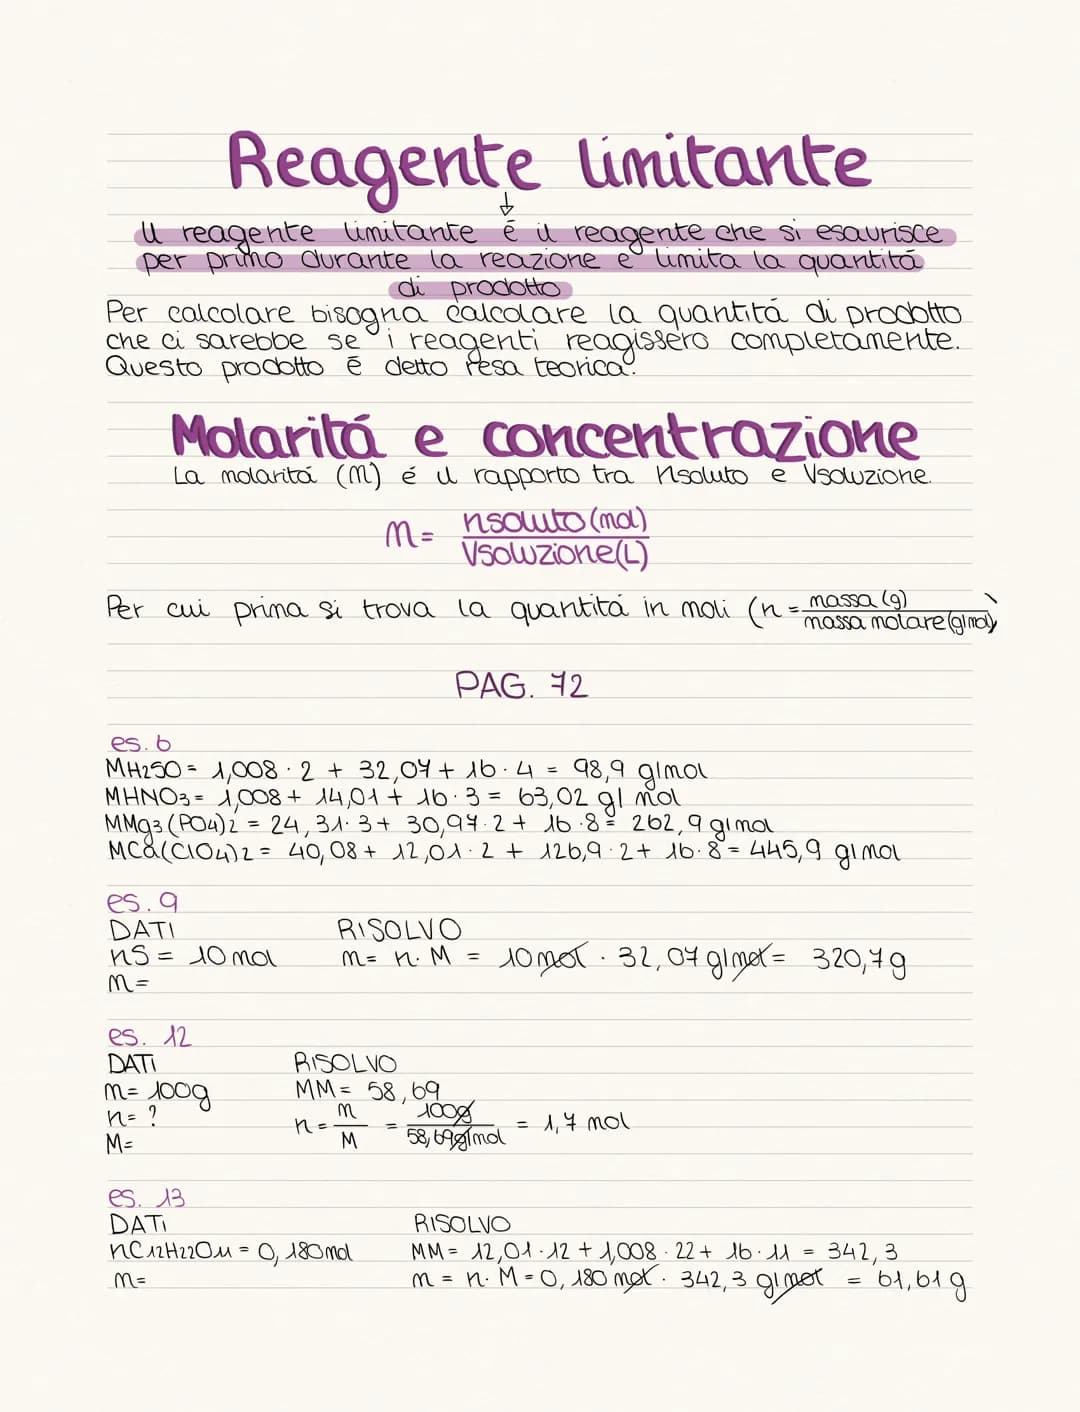 Reagente limitante
Il reagente limitante é il reagente che si esaurisce
per primo durante la reazione e limita la quantitá
di prodotto
Per calcolare bisogna calcolare la quantitá di prodotto
che ci sarebbe se i reagenti reagissero completamente.
Questo prodotto é detto resa teorica.
Molaritá e concentrazione
La molaritá (M) é il rapporto tra nsoluto e Vsoluzione.
M = nsoluto (mol)
Vsoluzione (L)
Per cui prima si trova la quantitá in moli (n = massa (g)
massa molare (g/mol))
PAG. 72
es. 6
MH2SO = 1,008 · 2 + 32,07 + 16 · 4 = 98,9 g/mol
MHNO3 = 1,008 + 14,01 + 16 · 3 = 63,02 g/mol
MMg3(PO4)2 = 24,31 · 3 + 30,97 · 2 + 16 · 8 = 262,9 g/mol
MCa(ClO4)2 = 40,08 + 12,01 · 2 + 126,9 · 2 + 16 · 8 = 445,9 g/mol
es. 9
DATI RISOLVO
nS = 10 mol m = n · M = 10 mol · 32,07 g/mol = 320,7 g
m =
es. 12
DATI RISOLVO
m = 100g MM = 58,69
n = ? n = m/M = 100g/58,69g/mol = 1,7 mol
M =
es. 13
DATI RISOLVO
nC12H22O11 = 0,180 mol MM = 12,01 · 12 + 1,008 · 22 + 16 · 11 = 342,3
m = m = n · M = 0,180 mol · 342,3 g/mol = 61,61 g